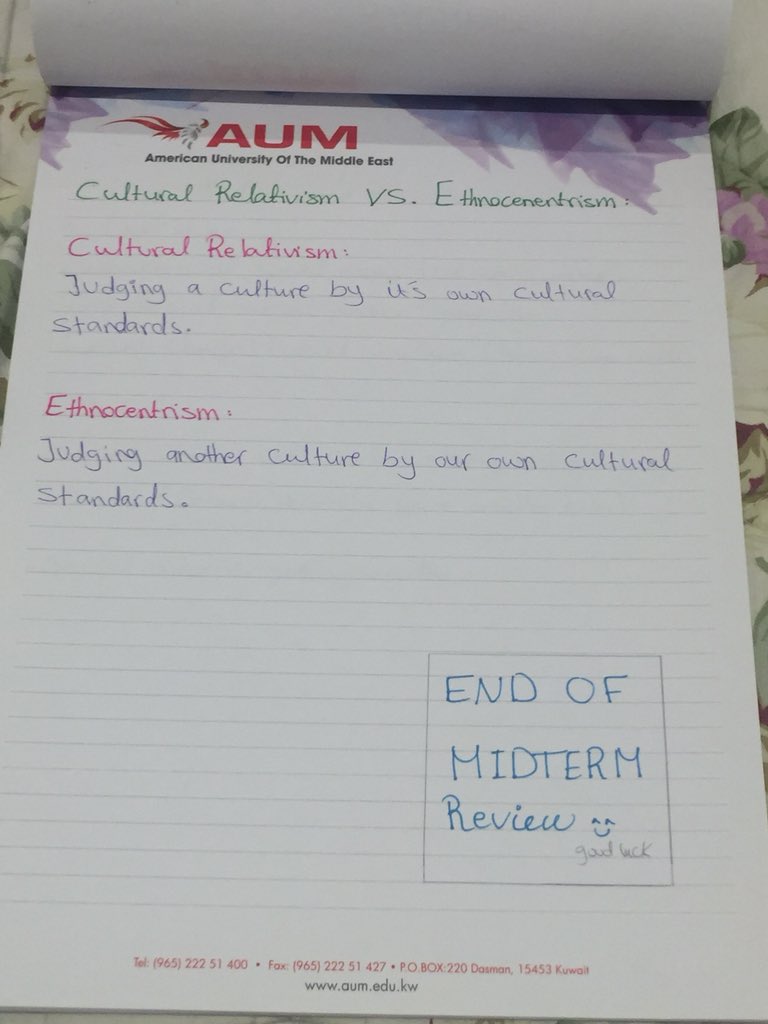 AUM
American University Of The Middle East
Cultural Relativism VS. Ethnocenentrism:
Cultural Relativism:
Judging a culture by it's own cultural
standards.
Ethnocentrism:
Judging another culture by our own cultural
standards.
END OF
MIDTERM
Review
good luck
Tel: (965) 222 51 400 • Fax: (965) 222 51 427 • P.O.BOX:220 Dasman, 15453 Kuwait
www.aum.edu.kw